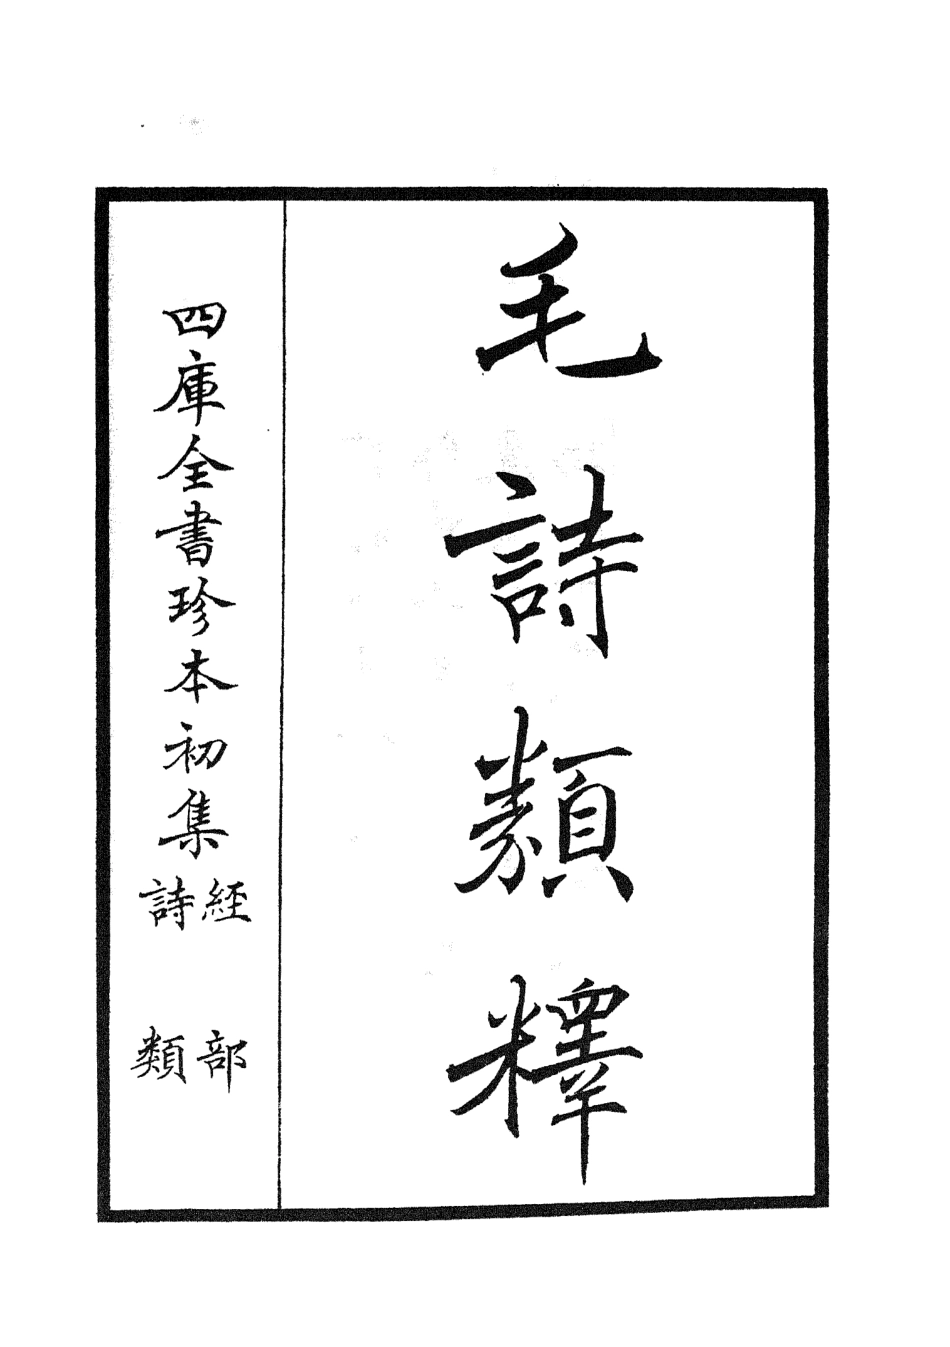 毛詩類釋
四庫全書珍本初集
經部
詩類